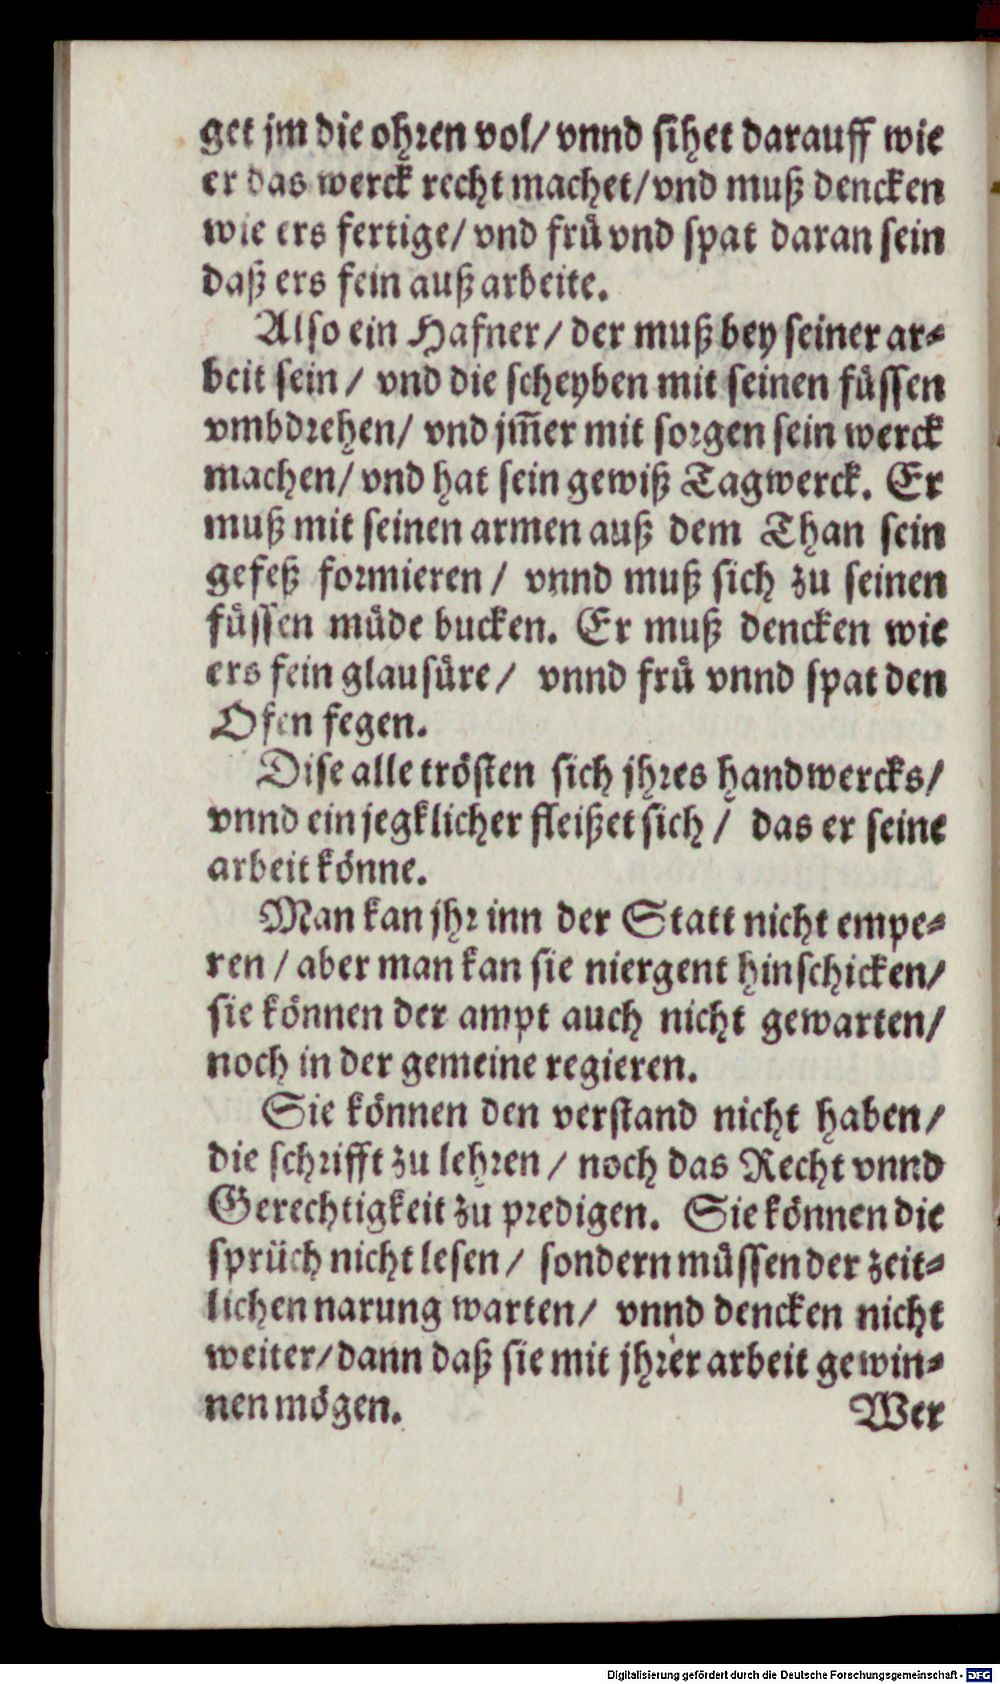 get jm die ohren vol/ vnnd sihet darauff wie
er das werck recht machet/ vnd muß dencken
wie ers fertige/ vnd frů vnd spat daran sein
daß ers fein auß arbeite.
Also ein Hafner/ der muß bey seiner ar⸗
beit sein/ vnd die scheyben mit seinen fůssen
vmbdrehen/ vnd jm̃er mit sorgen sein werck
machen/ vnd hat sein gewiß Tagwerck. Er
muß mit seinen armen auß dem Than sein
gefeß formieren/ vnnd muß sich zu seinen
fůssen můde bucken. Er muß dencken wie
ers fein glausůre/ vnnd frů vnnd spat den
Ofen fegen.
Dise alle trösten sich jhres handwercks/
vnnd ein jegklicher fleißet sich/ das er seine
arbeit könne.
Man kan jhr inn der Statt nicht empe⸗
ren/ aber man kan sie niergent hinschicken/
sie können der ampt auch nicht gewarten/
noch in der gemeine regieren.
Sie können den verstand nicht haben/
die schrifft zu lehren/ noch das Recht vnnd
Gerechtigkeit zu predigen. Sie können die
sprüch nicht lesen/ sondern můssen der zeit⸗
lichen narung warten/ vnnd dencken nicht
weiter/ dann daß sie mit jhrer arbeit gewin⸗
nen mögen. Wer
Digitalisierung gefördert durch die Deutsche Forschungsgemeinschaft - DFG